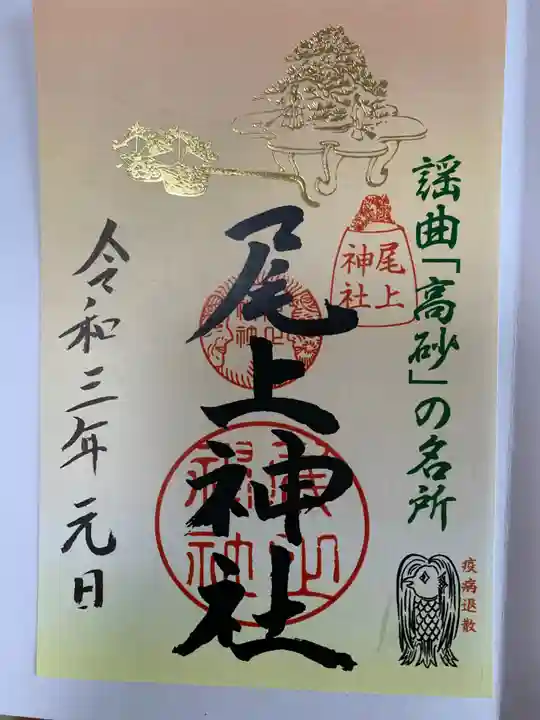 謡曲「高砂」の名所
疫病退散
尾上
神社
尾上神社
令和三年 元日